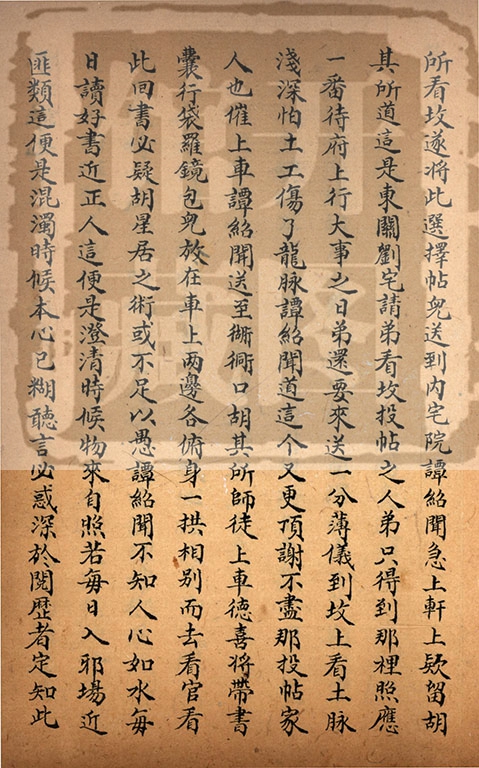 所看坟遂將此選擇帖兒送到內宅院譚紹聞急上軒上欵留胡
其所道這是東關劉宅請弟看坟投帖之人弟只得到那裡照應
一番待府上行大事之日弟還要來送一分薄儀到坟上看土脉
淺深怕土工傷了龍脉譚紹聞道這个又更頂謝不盡那投帖家
人也催上車譚紹聞送至衚衕口胡其所師徒上車德喜將帶書
囊行袋羅鏡包兒放在車上两邊各俯身一拱相别而去看官看
此回書必疑胡星居之術或不足以愚譚紹聞不知人心如水每
日讀好書近正人這便是澄清時候物來自照若每日入邪場近
匪類這便是混濁時候本心已糊聽言必惑深於閱歷者定知此